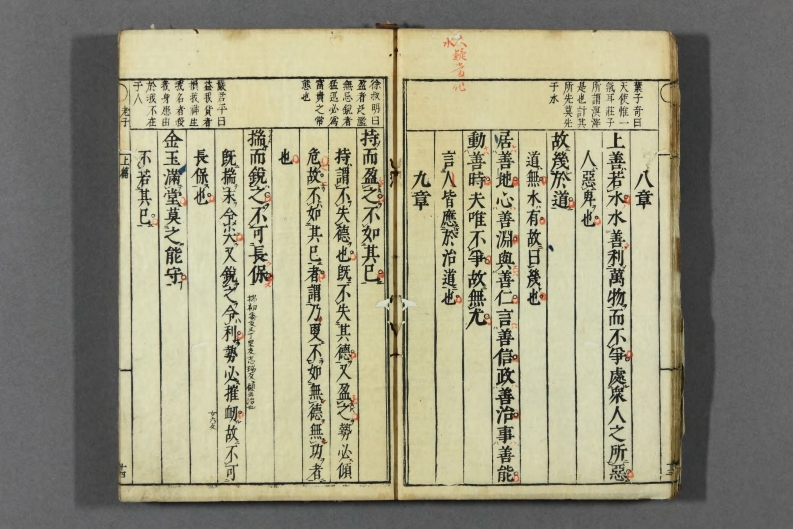 八章
上善若水水善利萬物而不爭處衆人之所惡
人惡卑也
故幾於道
道無水有故曰幾也
居善地心善淵與善仁言善信政善治事善能
動善時夫唯不爭故無尤
言人皆應於治道也
九章
葉子奇曰
天使惟一
氣耳莊子
所謂溟涬
是也計其
所先莫先
于水
持而盈之不如其已
持謂不失德也既不失其德又盈之勢必傾
危故不如其已者謂乃更不如無德無功者
也
揣而銳之不可長保
既揣末令尖又銳之令利勢必摧衂故不可
長保也
金玉滿堂莫之能守
不若其已
徐叔明曰
盈者近濫
無忌銳者
猛迅必爲
富貴之常
態也
嚴君平曰
益我貨者
損我神生
我名者殺
我身應由
於我不在
于人
老子
上篇